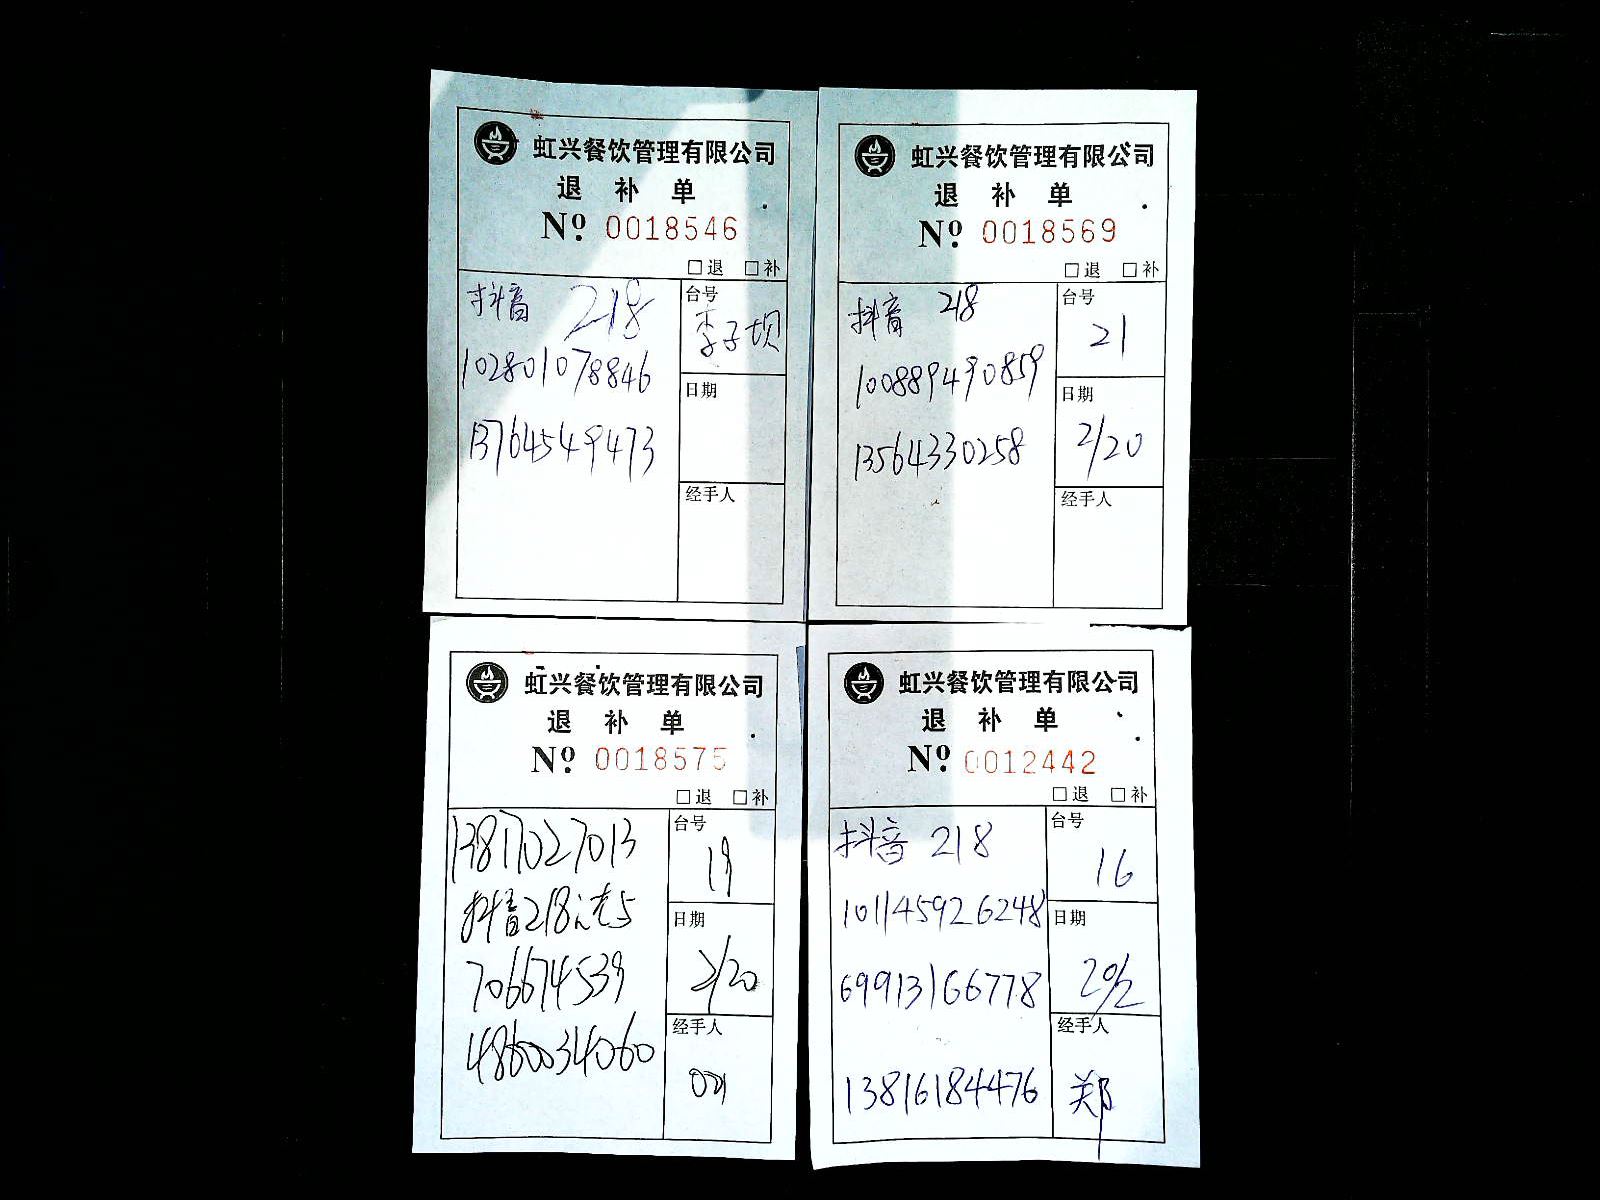 虹兴餐饮管理有限公司
退 补 单
Nº 0018546
□退 □补
抖音 218
102801078846
13764549473
台号
李子坝
日期
经手人
虹兴餐饮管理有限公司
退 补 单
Nº 0018569
□退 □补
抖音 218
100889490859
13564330258
台号
21
日期
2/20
经手人
虹兴餐饮管理有限公司
退 补 单
Nº 0018575
□退 □补
13817027013
抖音218元
706674539
4860034060
台号
19
日期
2/20
经手人
虹兴餐饮管理有限公司
退 补 单
Nº 0012442
□退 □补
抖音 218
101145926248
69913166778
13816184476
台号
16
日期
20/2
经手人
郑